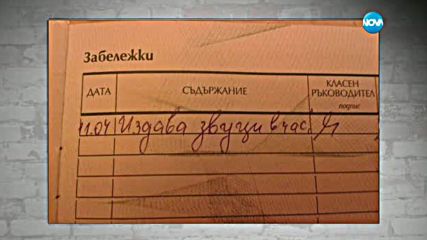 NOVA
Забележки
ДАТА СЪДЪРЖАНИЕ КЛАСЕН РЪКОВОДИТЕЛ
подпис
11.04 Издава звуци в час.